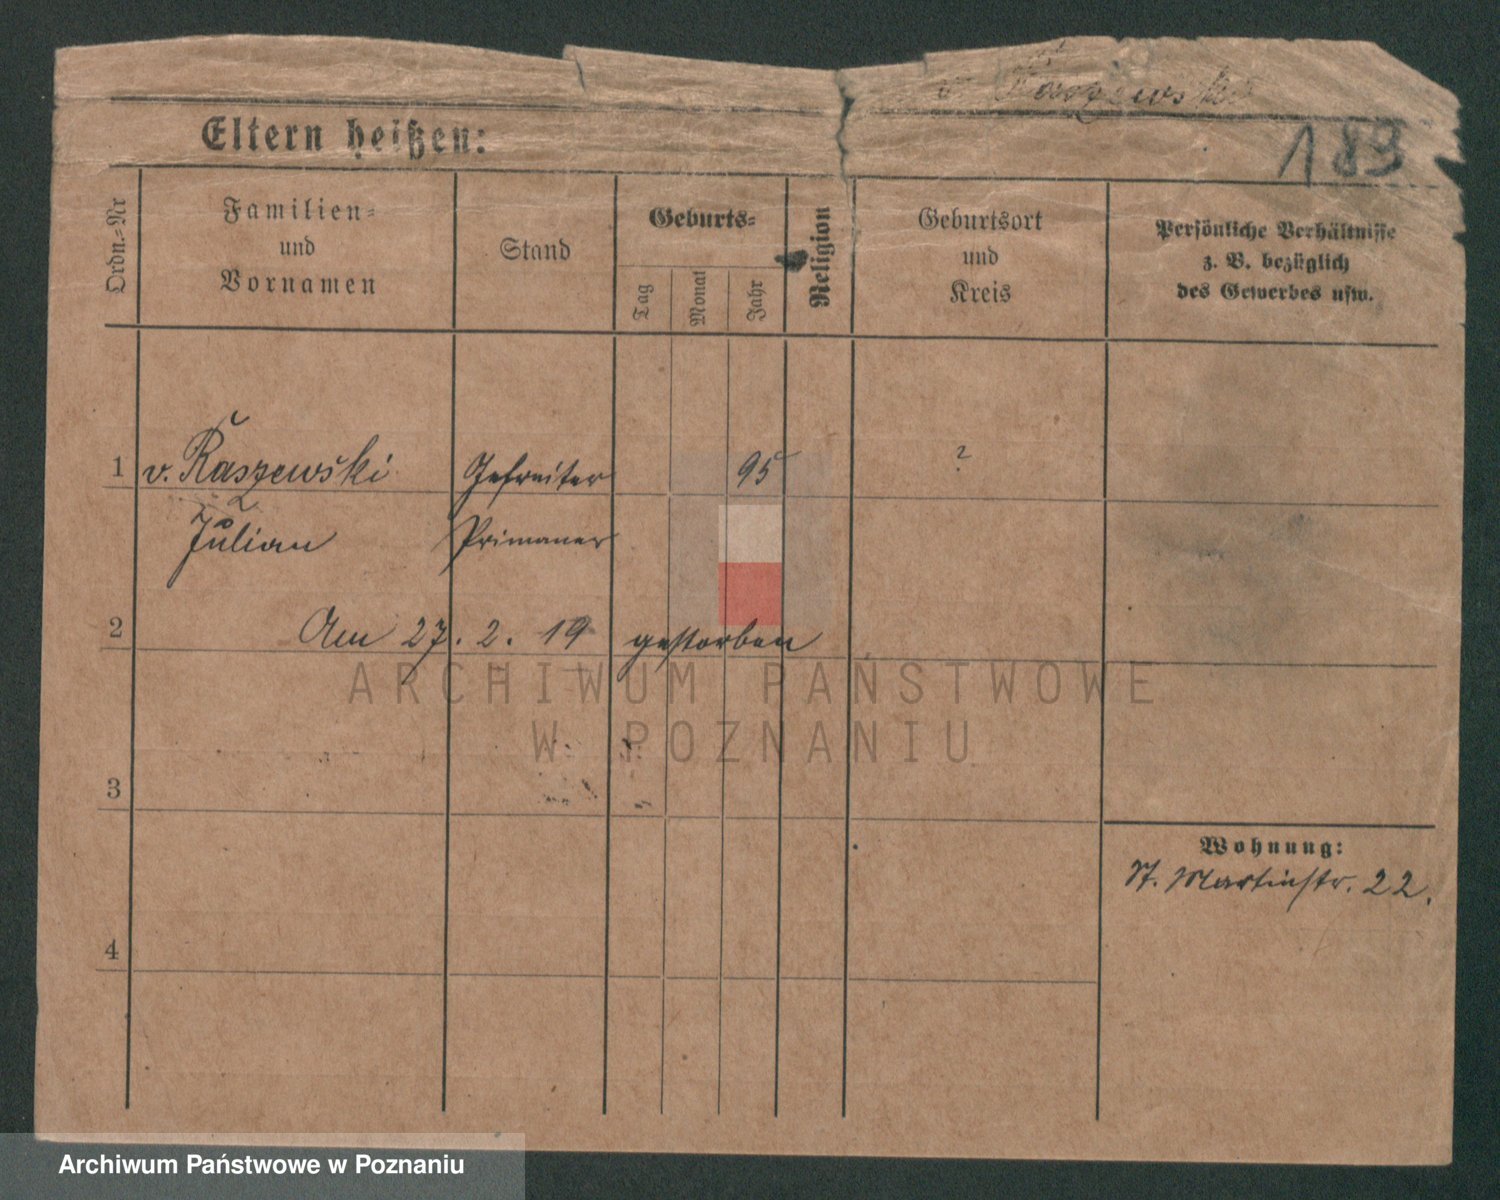 v. Raszewski
Eltern heißen:
189
Ordn.-Nr
Familien-
und
Vornamen
Stand
Geburts-
Tag
Monat
Jahr
Religion
Geburtsort
und
Kreis
Persönliche Verhältnisse
z. B. bezüglich
des Gewerbes usw.
1 v. Raszewski Gefreiter 95 ?
Julian Primaner
2 Am 27. 2. 19 gestorben
ARCHIWUM PAŃSTWOWE
W POZNANIU
3
Wohnung:
St. Martinstr. 22.
4
Archiwum Państwowe w Poznaniu